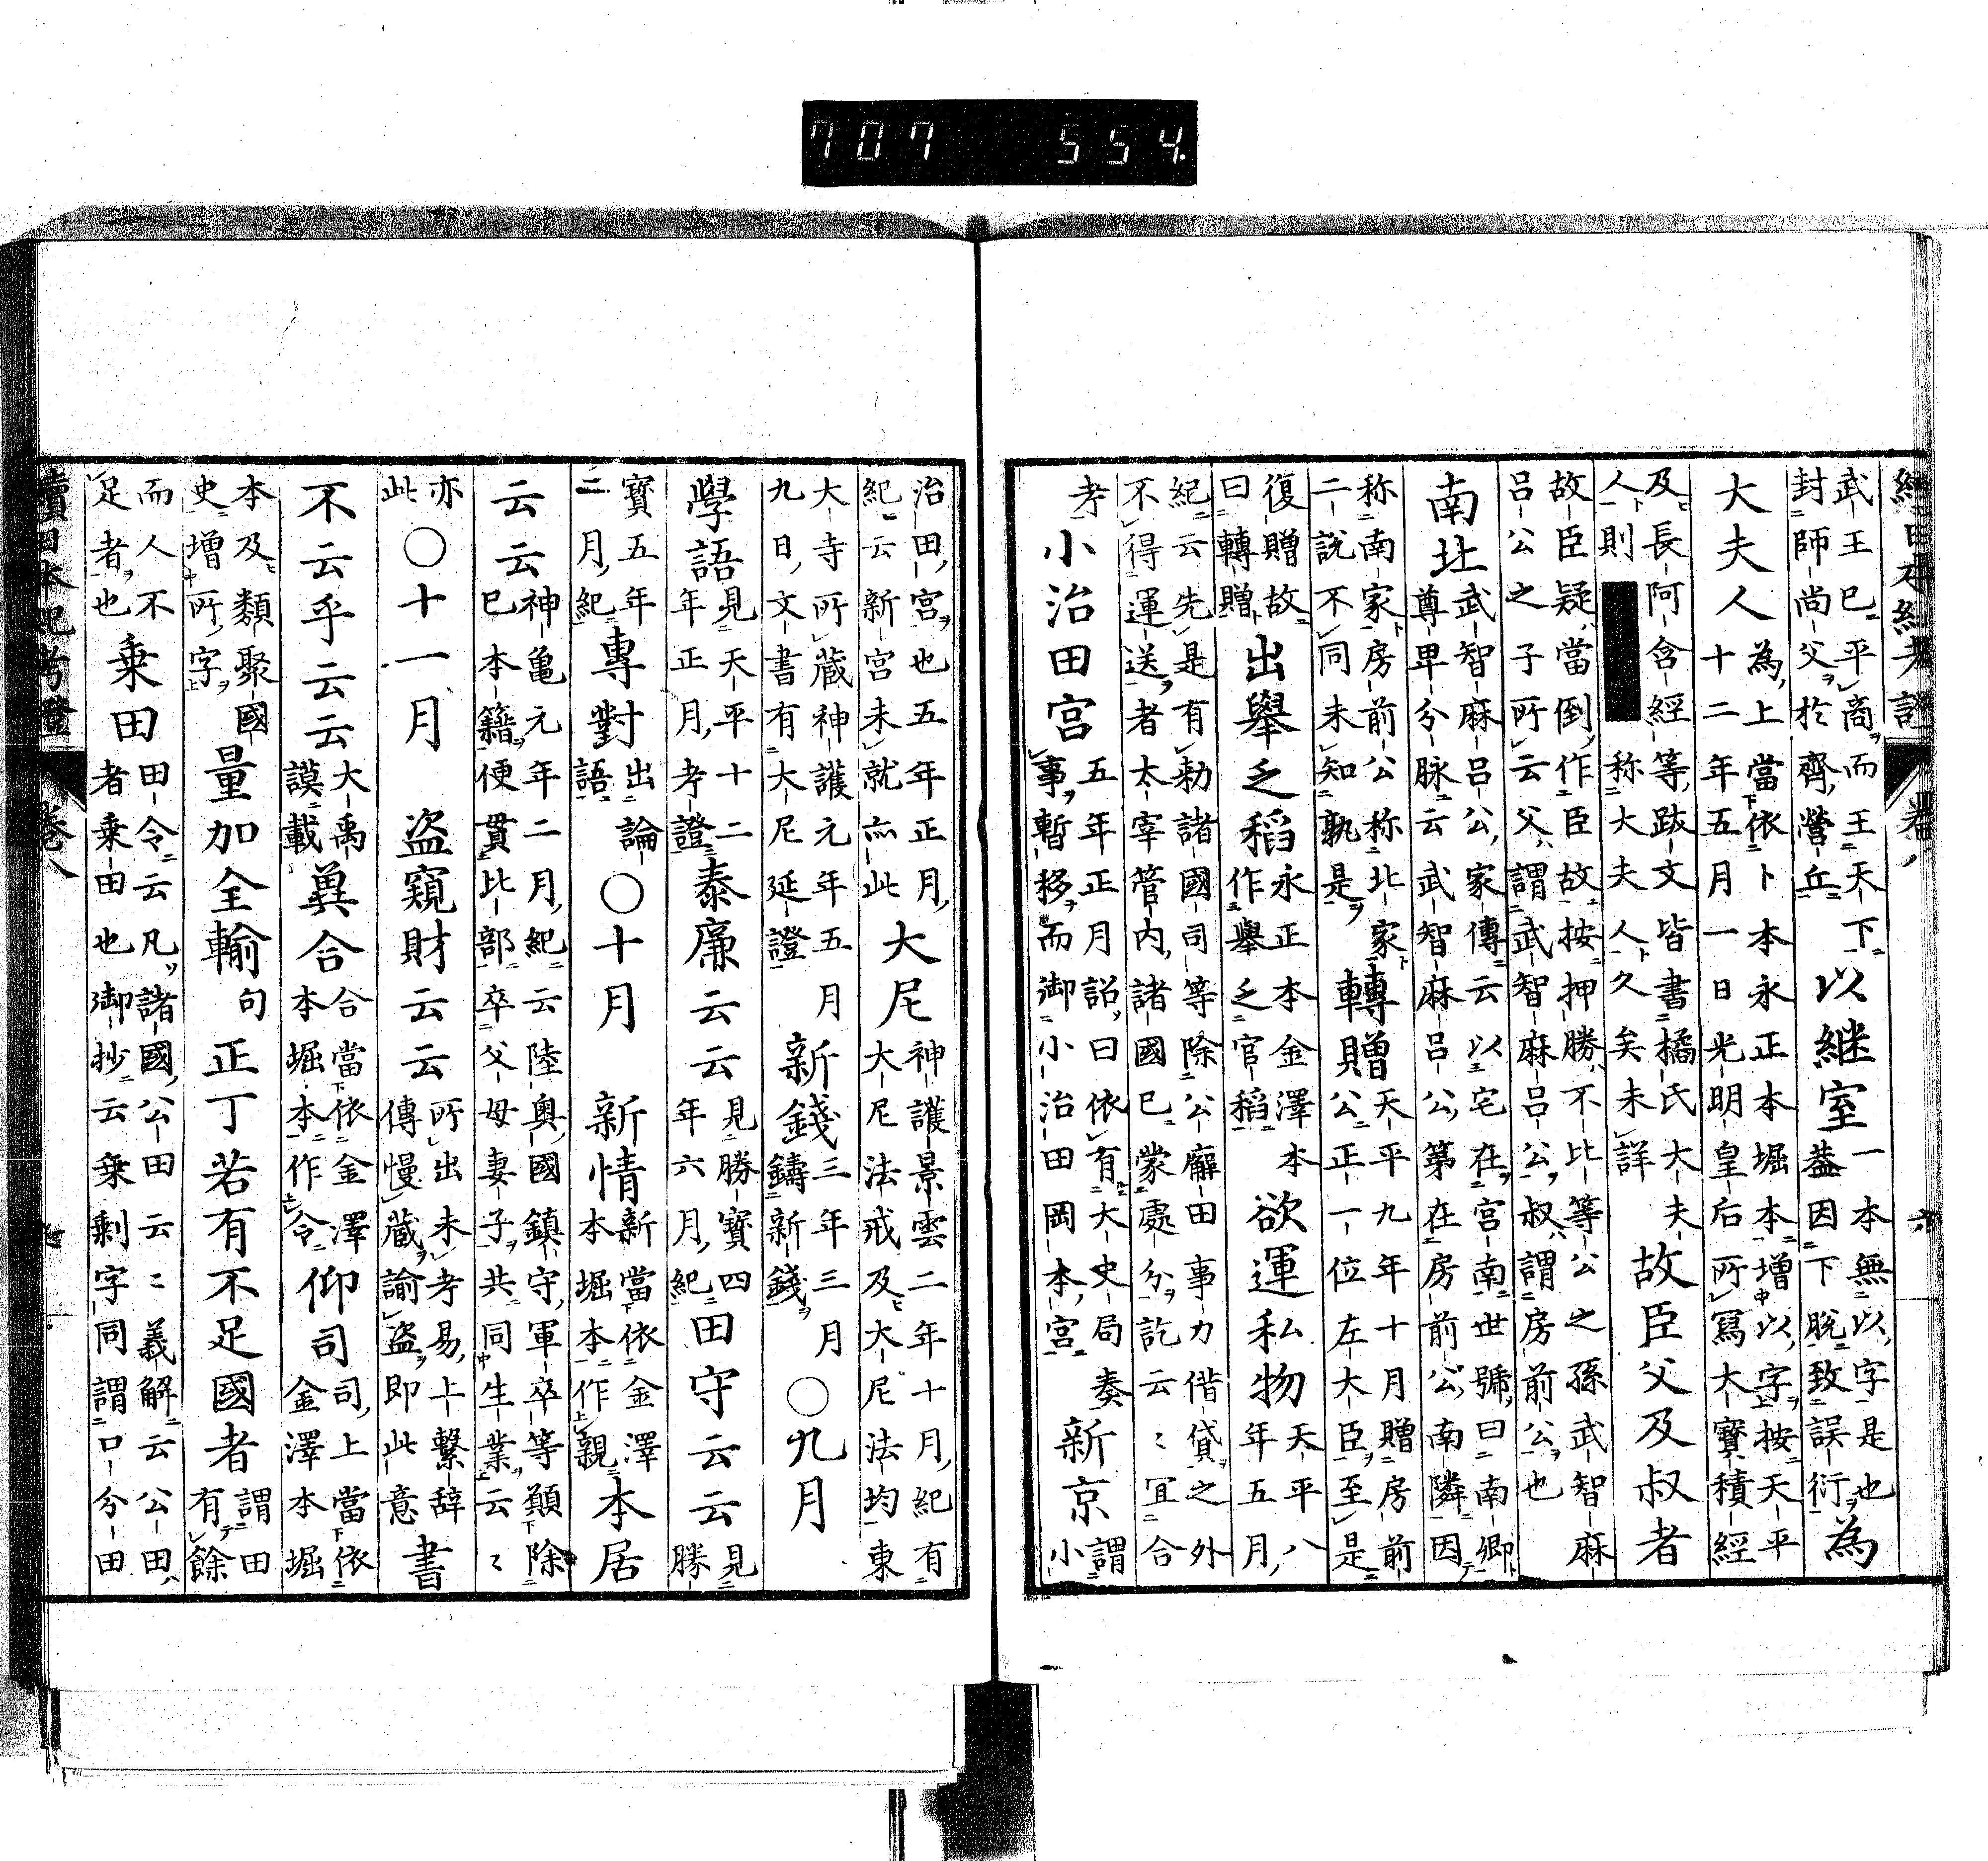 707 554.
武王已平商而王天下
封師尚父於齊營丘
以継室
一本無以字是也
蓋因下脱致誤衍
為
大夫人
為上當依卜本永正本堀本増以字按天平
十二年五月一日光明皇后所冩大寳積經
及長阿含經等跋文皆書橘氏大夫
人則 称大夫人久矣未詳
故臣父及叔者
故臣疑當倒作臣故按押勝不比等公之孫武智麻
吕公之子所云父謂武智麻吕公叔謂房前公也
南北
武智麻吕公家傳云以宅在宮南世號曰南卿
尊卑分脉云武智麻吕公第在房前公南隣因
称南家房前公称北家
二説不同未知孰是
轉贈
天平九年十月贈房前
公正一位左大臣至是
復贈故
曰轉贈
出舉之稻
永正本金澤本
作舉之官稻
欲運私物
天平八
年五月
紀云先是有勅諸國司等除公廨田事力借貸之外
不得運送者太宰管内諸國已蒙處分訖云〻宜合
考
小治田宮
五年正月詔曰依有大史局奏
事暫移而御小治田岡本宮
新京
謂
小
治田宮也五年正月紀有
紀云新宮未就亦此
大尼
神護景雲二年十月紀有
大尼法戒及大尼法均東
大寺所蔵神護元年五月
九日文書有大尼延證
新錢
三年三月
鑄新錢
○九月
學語
見天平十二
年正月考證
秦廉云云
見勝寳四
年六月紀
田守云云
見
勝
寳五年
二月紀
專對
出論
語
○十月
新情
新當依金澤
本堀本作親
本居
云云
神亀元年二月紀云陸奥國鎮守軍卒等願除
已本籍便貫此部卒父母妻子共同生業云〻
亦
此
○十一月
盗窺財云云
所出未考易上繫辞
傳慢蔵諭盗即此意
書
不云乎云云
大禹
謨載
冀合
合當依金澤
本堀本作令
仰司
司上當依
金澤本堀
本及類聚國
史増所字
量加全輸
句
正丁若有不足國者
謂田
有餘
而人不
足者也
乗田
田令云凡諸國公田云〻義解云公田
者乗田也御抄云乗剰字同謂口分田
續日本紀考證 卷八